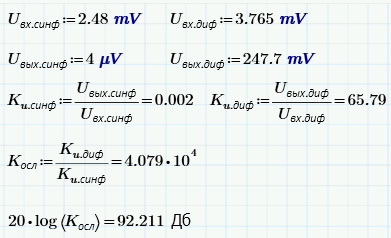 U вх.синф := 2.48 mV U вх.диф := 3.765 mV
U вых.синф := 4 μV U вых.диф := 247.7 mV
K u.синф := U вых.синф / U вх.синф = 0.002 K u.диф := U вых.диф / U вх.диф = 65.79
K осл := K u.диф / K u.синф = 4.079 • 10^4
20 • log (K осл) = 92.211 Дб